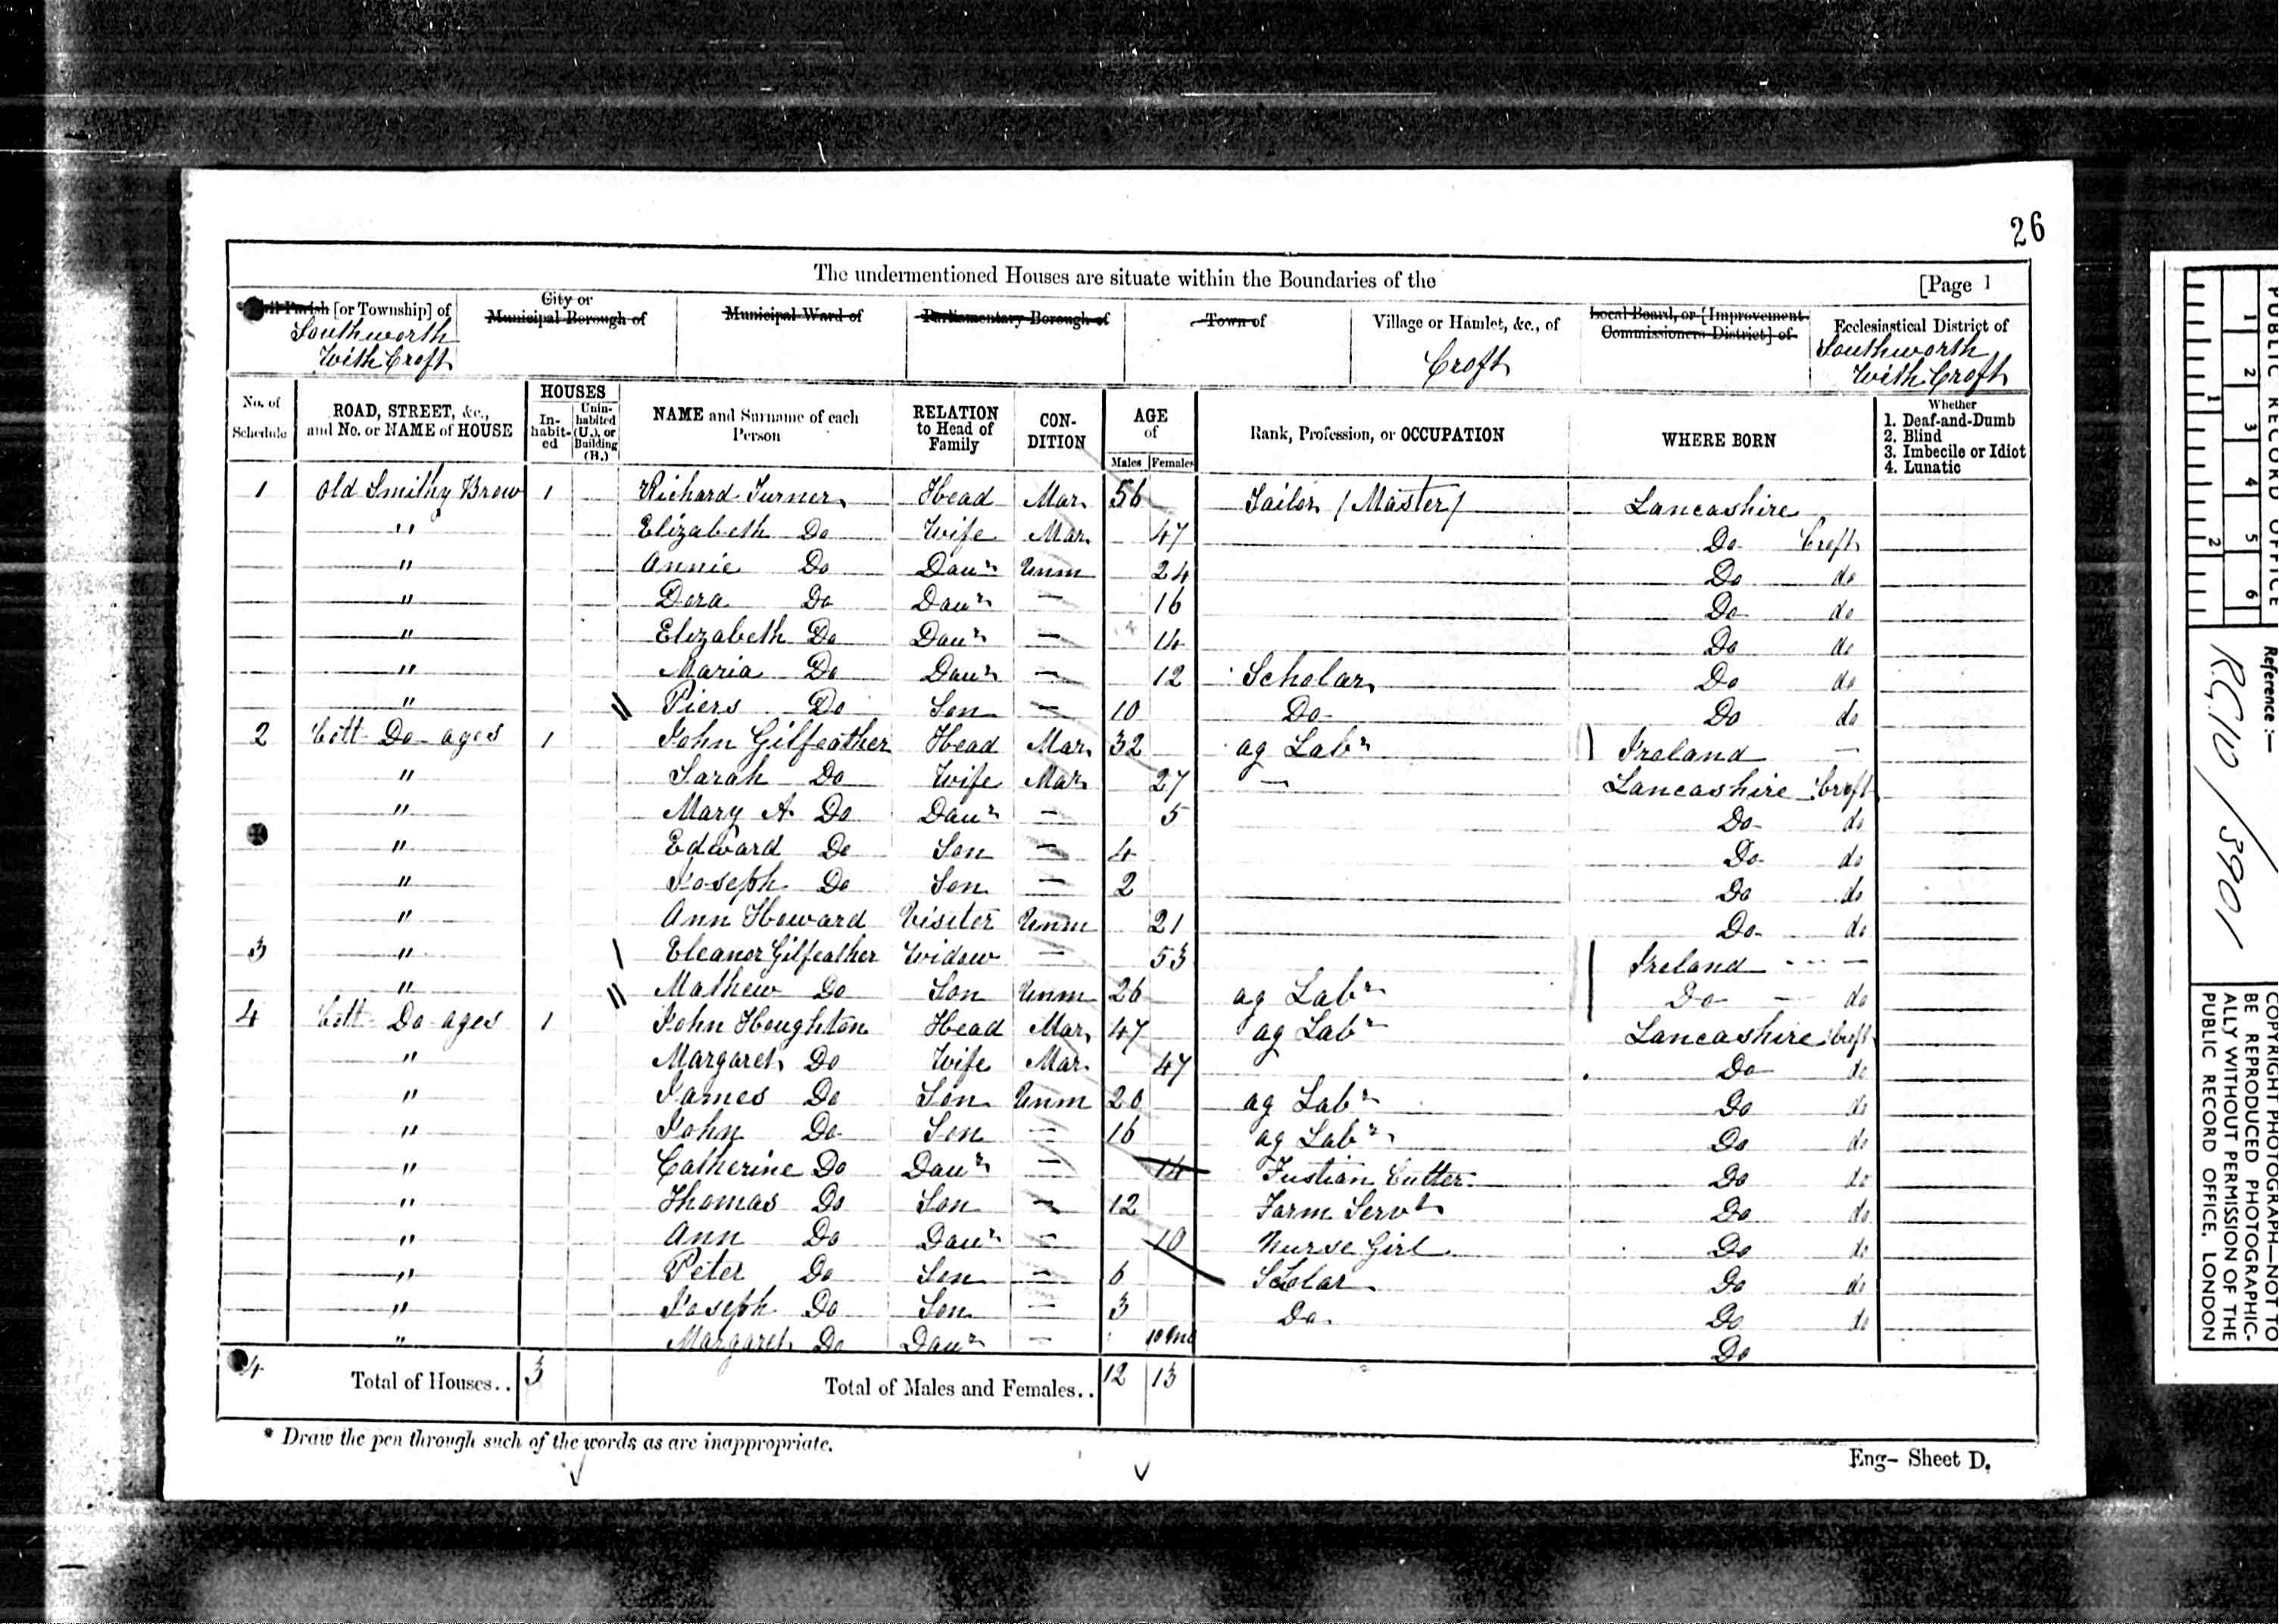 26
The undermentioned Houses are situate within the Boundaries of the [Page 1
Parish [or Township] of City or Municipal Borough of Municipal Ward of Parliamentary Borough of Town of Village or Hamlet, &c., of Local Board, or [Improvement Commissioners District] of Ecclesiastical District of
Southworth With Croft Croft Southworth With Croft
No. of Schedule ROAD, STREET, &c., and No. or NAME of HOUSE HOUSES Inhabited Uninhabited (U.), or Building (B.) NAME and Surname of each Person RELATION to Head of Family CONDITION AGE of Males Females Rank, Profession, or OCCUPATION WHERE BORN Whether 1. Deaf-and-Dumb 2. Blind 3. Imbecile or Idiot 4. Lunatic
1 Old Smithy Brow 1 Richard Turner Head Mar 56 Tailor (Master) Lancashire
" Elizabeth Do Wife Mar 47 Do Croft
" Annie Do Daur Unm 24 Do do
" Dora Do Daur — 16 Do do
" Elizabeth Do Daur — 14 Do do
" Maria Do Daur — 12 Scholar Do do
" Piers Do Son — 10 Do Do do
2 Cott Do ages 1 John Gilfeather Head Mar 32 ag Labr Ireland —
" Sarah Do Wife Mar 27 — Lancashire Croft
" Mary A Do Daur — 5 Do do
" Edward Do Son — 4 Do do
" Joseph Do Son — 2 Do do
" Ann Howard Visiter Unm 21 Do do
3 " Eleanor Gilfeather Widow — 53 Ireland — —
" Mathew Do Son Unm 26 ag Labr Do — do
4 Cott Do ages 1 John Houghton Head Mar 47 ag Labr Lancashire Croft
" Margaret Do Wife Mar 47 Do do
" James Do Son Unm 20 ag Labr Do do
" John Do Son — 16 ag Labr Do do
" Catherine Do Daur — 14 Fustian Cutter Do do
" Thomas Do Son — 12 Farm Servt Do do
" Ann Do Daur — 10 Nurse Girl Do do
" Peter Do Son — 6 Scholar Do do
" Joseph Do Son — 3 Do Do do
" Margaret Do Daur — 10 mo Do
4 Total of Houses.. 3 Total of Males and Females.. 12 13
* Draw the pen through such of the words as are inappropriate.
Eng- Sheet D.
PUBLIC RECORD OFFICE
1 2 3 4 5 6
1 2
Reference :—
RG 10/3901
COPYRIGHT PHOTOGRAPH—NOT TO BE REPRODUCED PHOTOGRAPHIC-
ALLY WITHOUT PERMISSION OF THE
PUBLIC RECORD OFFICE, LONDON